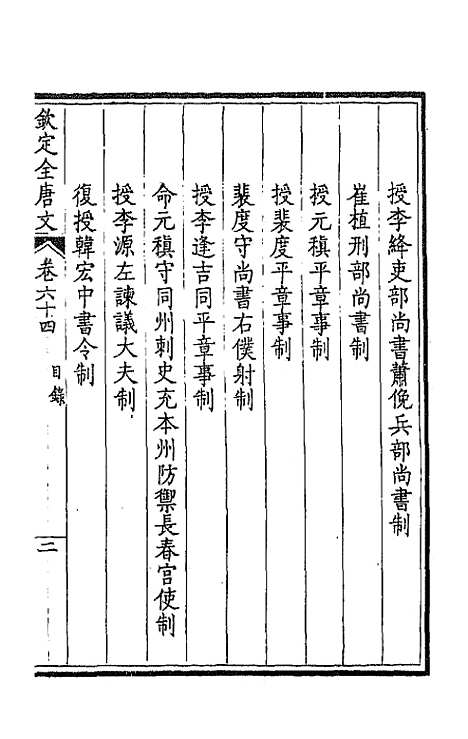 授李絳吏部尚書蕭俛兵部尚書制
崔植刑部尚書制
授元稹平章事制
授裴度平章事制
裴度守尚書右僕射制
授李逢吉同平章事制
命元稹守同州刺史充本州防禦長春宮使制
授李源左諫議大夫制
復授韓宏中書令制
欽定全唐文 卷六十四 目錄 二